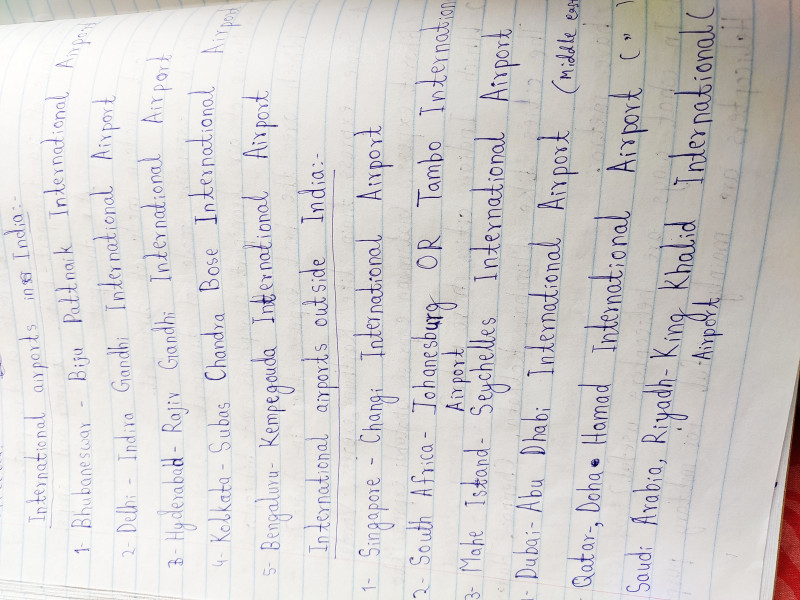 International airports in India:-
1- Bhubaneswar - Biju Pattnaik International Airport
2- Delhi - Indira Gandhi International Airport
3- Hyderabad - Rajiv Gandhi International Airport
4- Kolkata - Subas Chandra Bose International Airport
5- Bengaluru- Kempegouda International Airport
International airports outside India:-
1- Singapore - Changi International Airport
2- South Africa - Johanesburg OR Tambo Internation
Airport
3- Mahe Istand - Seychelles International Airport
- Dubai - Abu Dhabi International Airport (Middle east
Qatar-, Doha Hamad International Airport ( " )
Saudi Arabia, Riyadh - King Khalid International (
Airport